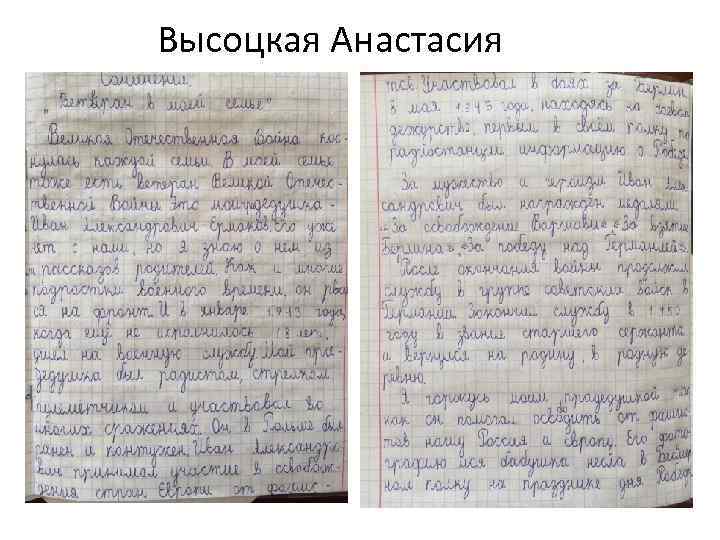 Высоцкая Анастасия
Сочинение.
„Ветеран в моей семье"
Великая Отечественная Война кос-
нулась каждой семьи. В моей семье
тоже есть ветеран Великой Отечес-
твенной Войны. Это мой прадедушка-
Иван Александрович Ермаков. Его уже
нет с нами, но я знаю о нем из
рассказов родителей. Как и многие
подростки военного времени, он рвал
ся на фронт. И в январе 1943 года,
когда ему не исполнилось 18 лет,
ушел на военную службу. Мой пра-
дедушка был радистом, стрелком
пулеметчиком и участвовал во
многих сражениях. Он в Польше был
ранен и контужен. Иван Александро-
вич принимал участие в освобож-
дения стран Европы от фашис-
тов. Участвовал в боях за Берлин.
8 мая 1945 года, находясь на боевом
дежурстве, первым в своём полку, по
радиостанции информацию о Победе
За мужество и героизм Иван Алек
сандрович был награжден медалями
„За освобождение Варшавы", «За взятие
Берлина», «За победу над Германией».
После окончания войны продолжал
службу в группе советских войск в
Германии. Закончил службу в 1950
году в звание старшего сержанта
и вернулся на родину, в родную де
ревню.
Я горжусь моим прадедушкой
как он помогал освободить от фашис
тов нашу Россия и Европу. Его фото
графию моя бабушка несла в Бессмер
ном полку на празднике дня Победы